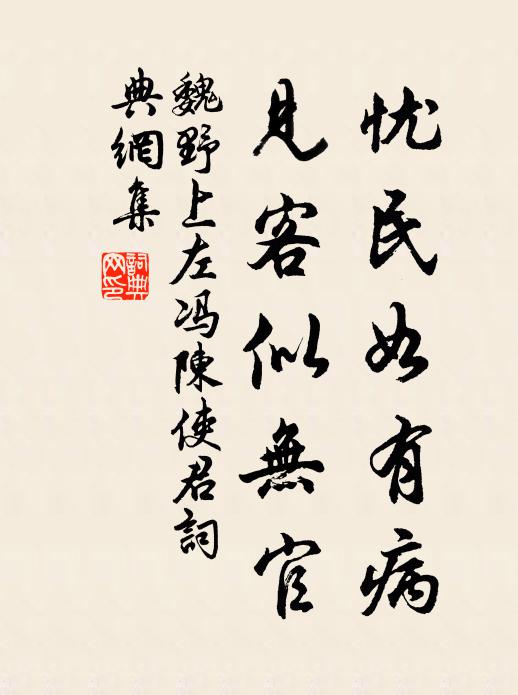 忧民如有病
见客似無官
魏野上左冯陳使君詞
典網集
詞典网印